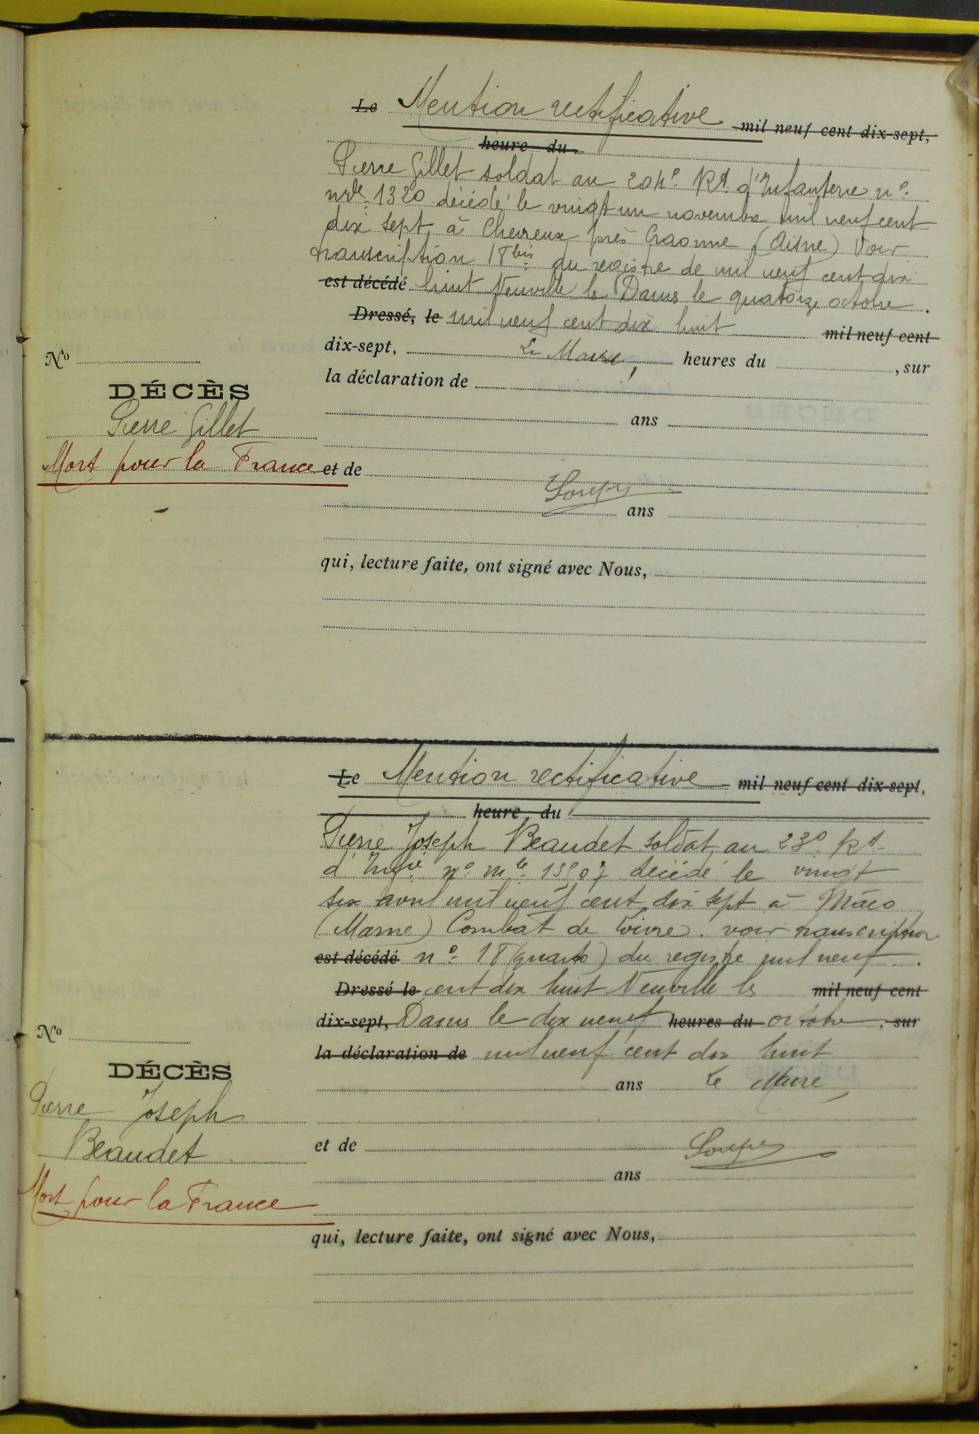 Le Mention rectificative mil neuf cent dix-sept,
heure du
Pierre Gillet soldat au 204e Rt d'Infanterie no
mle 1320 décédé le vingt un novembre mil neuf cent
dix sept à Chevreux près Craonne (Aisne) Voir
transcription 18 bis du registre de mil neuf cent dix
est décédé huit Neuville les Dames le quatorze octobre.
Dressé, le mil neuf cent dix huit mil neuf cent
dix-sept, Le Maire, heures du , sur
No
la déclaration de
DÉCÈS
Pierre Gillet
ans
Mort pour la France
et de
ans
qui, lecture faite, ont signé avec Nous,
Le Mention rectificative mil neuf cent dix-sept,
heure du
Pierre Joseph Beaudet soldat au 23e Rt
d'Infie no mle décédé le vingt
six avril mil neuf cent dix sept à
(Marne) Combat de voir transcription
est décédé no 18 (quarto) du registre mil neuf.
Dressé le cent dix huit Neuville les mil neuf cent
dix-sept, Dames le dix neuf heures du octobre, sur
No
la déclaration de mil neuf cent dix huit
DÉCÈS
ans Le Maire,
Pierre Joseph
Beaudet
et de
ans
Mort pour la France
qui, lecture faite, ont signé avec Nous,